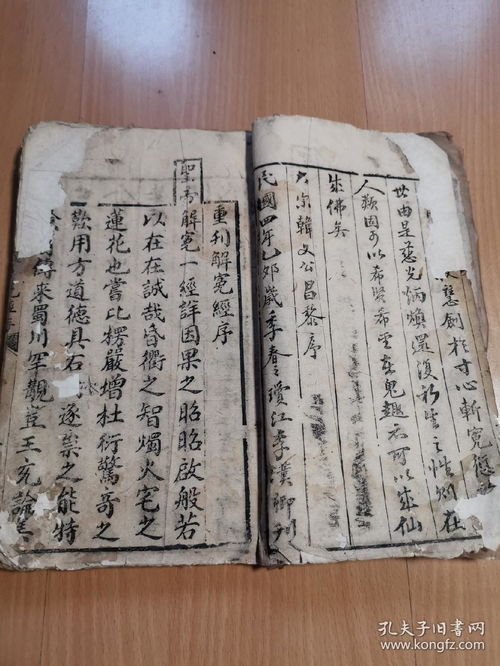 慧劍於寸心斬冤愆
世由是慈光炳煥還復於生之性則在
人類固可以希賢希聖在鬼趣亦可以成仙
成佛矣
宗韓文公昌黎序
民國四年乙卯歲季春之瓊江李漢卿刊
重刊解冤經序
聖帝解冤一經詳因果之昭昭啟般若
以在在誠哉昏衢之智燭火宅之
蓮花也嘗比楞嚴增杜衍驚奇之
歎用方道德具石 逐祟之能特
傳來蜀川罕觀豈王充論
孔夫子旧書网
www.kongfz.com